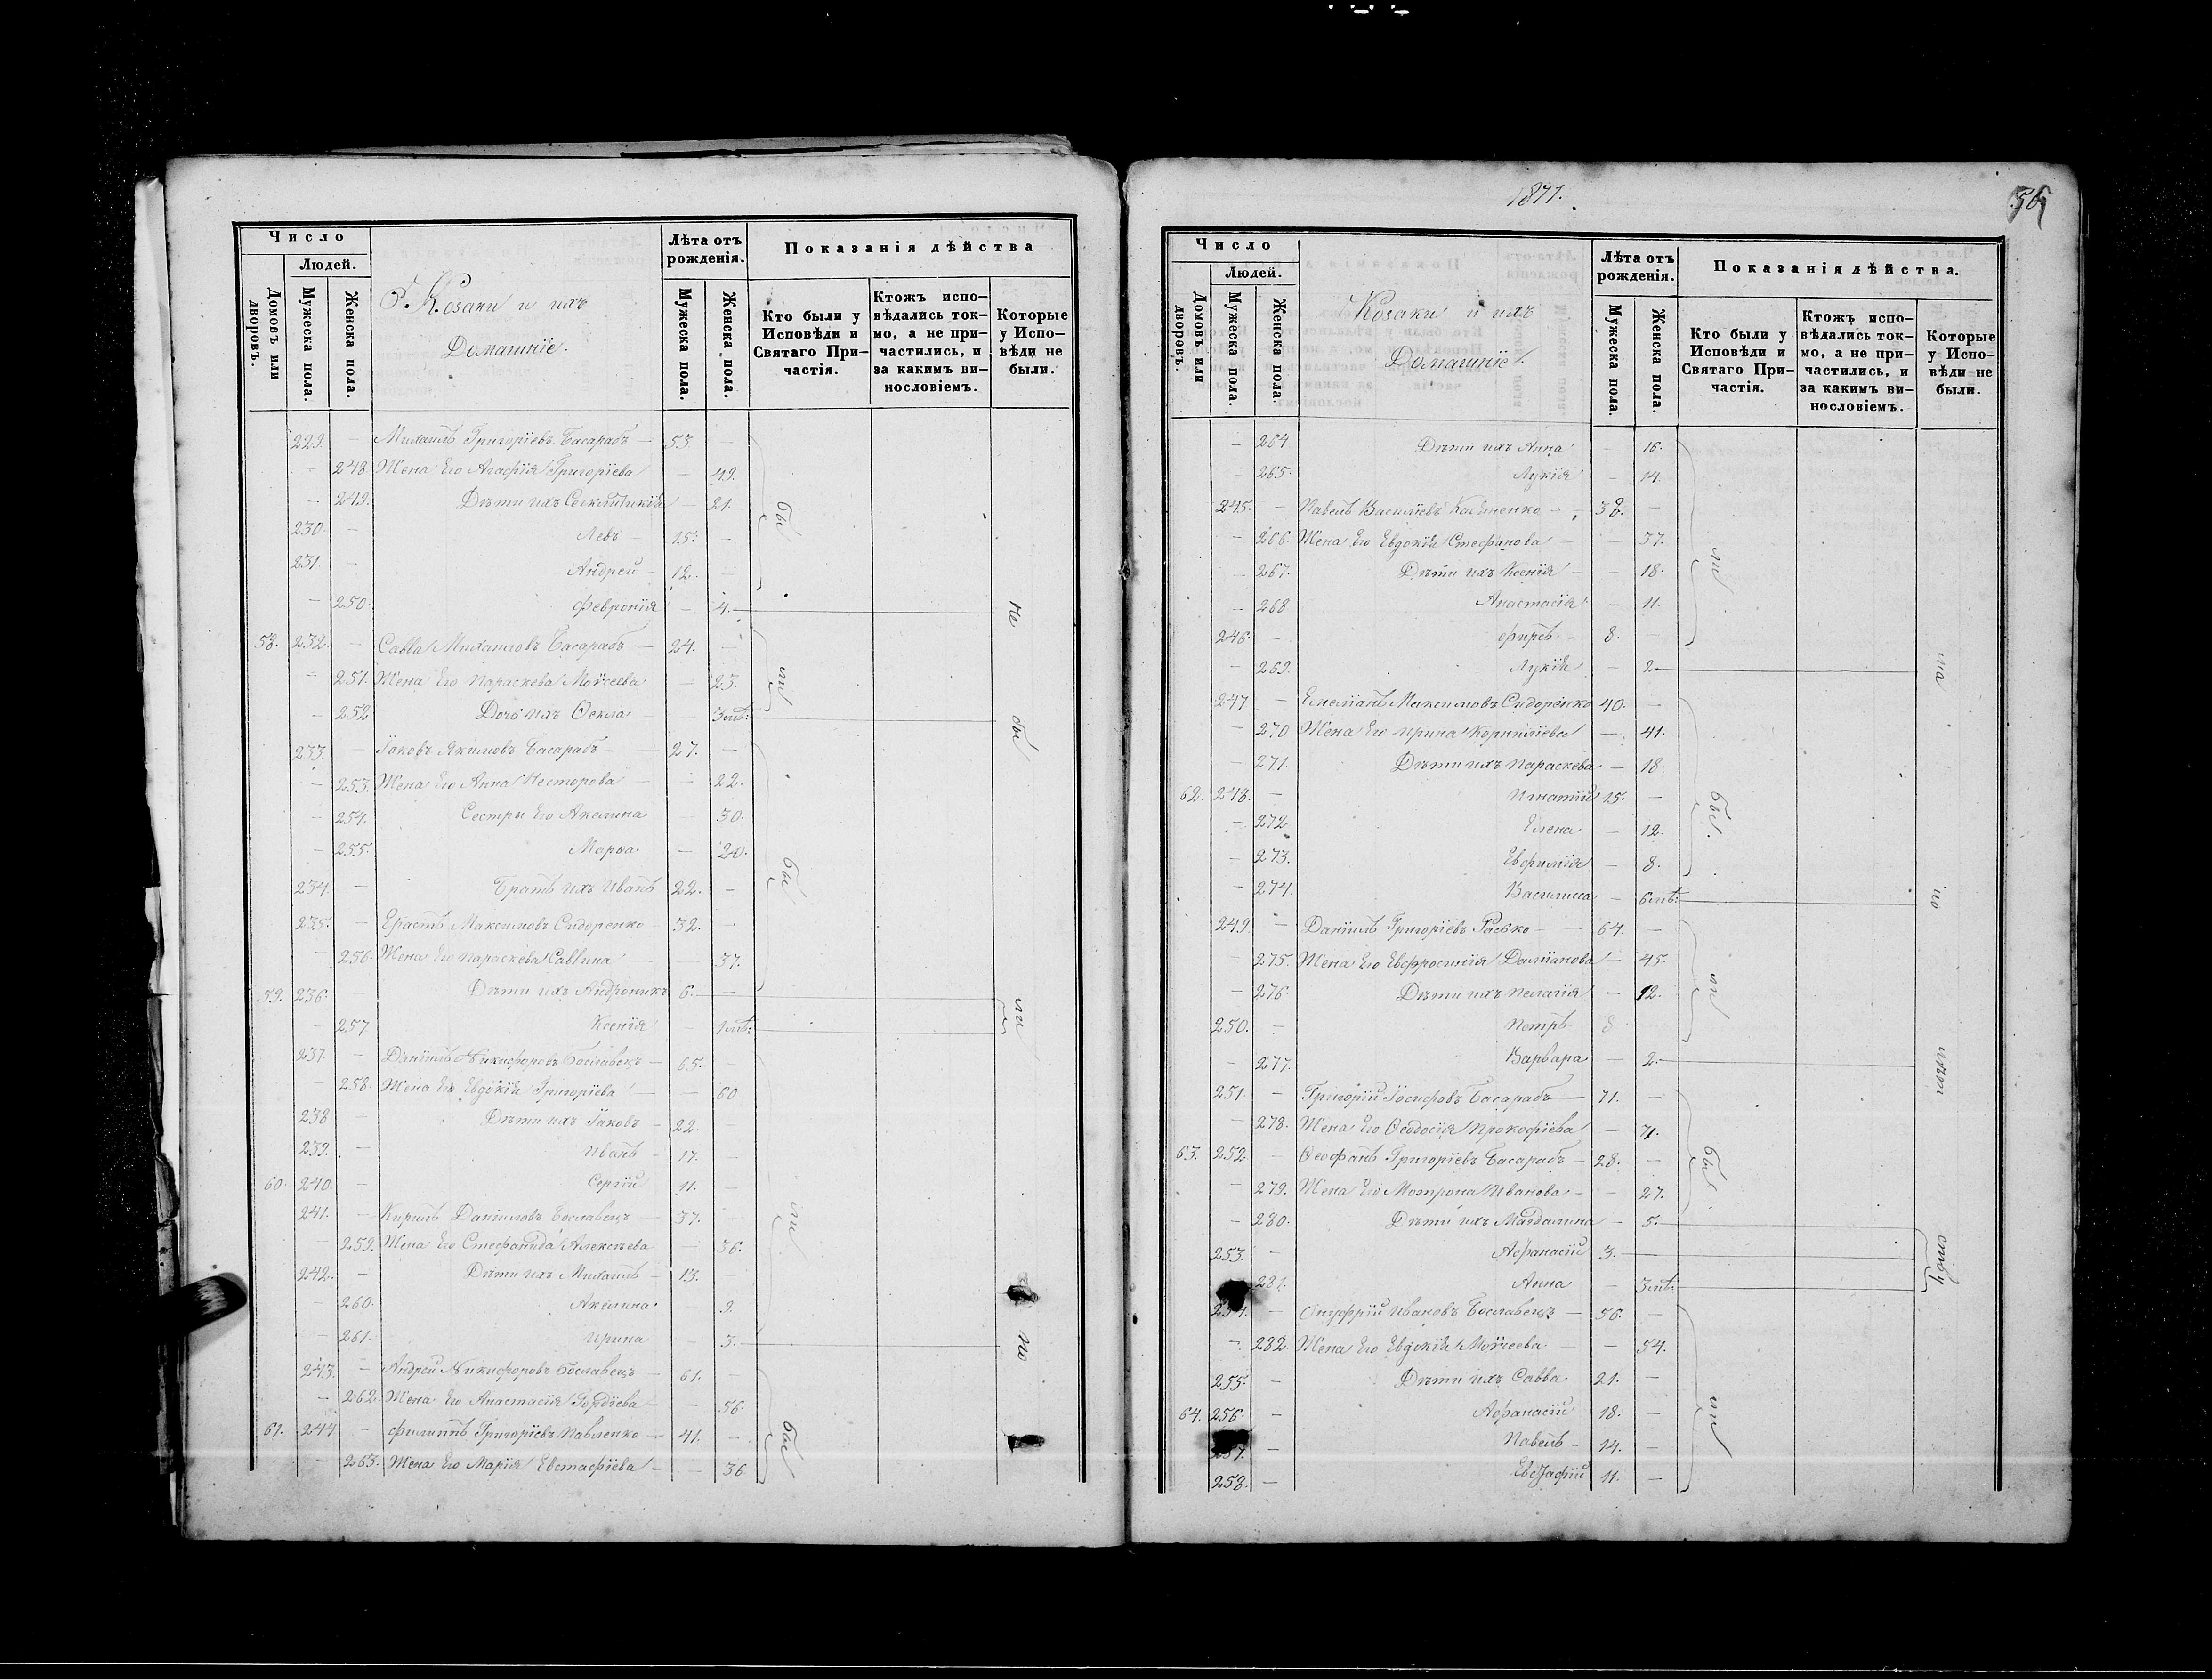 Число
Людей.
Домовъ или дворовъ.
Мужеска пола.
Женска пола.
Козаки и ихъ
Домашніе.
Лѣта отъ рожденія.
Мужеска пола.
Женска пола.
Показанія дѣйства
Кто были у Исповѣди и Святаго Причастія.
Ктожъ исповѣдались токмо, а не причастились, и за какимъ винословіемъ.
Которые у Исповѣди не были.
229. — Михаилъ Григоріевъ Басарабъ — 53 —
— 248 Жена Его Агафія Григоріева — 49.
— 249. Дѣти ихъ Секлитикія — 21.
230. — Левъ — 15. —
231. — Андрей — 12. —
— 250. Февронія — 4.
58. 232. — Савва Михаиловъ Басарабъ — 24. —
— 251. Жена Его Параскева Моѵсеева — 23.
— 252 Дочь ихъ Ѳекла — 3 мѣ:
233. — Іаковъ Якимовъ Басарабъ — 27. —
— 253. Жена Его Анна Несторова — 22.
— 254. Сестры Его Акелина — 30.
— 255. Марѳа — 20.
234 — Братъ ихъ Иванъ 22. —
235. — Ерастъ Максимовъ Сидоренко 32. —
— 256. Жена Его Параскева Саввина — 37.
59. 236. — Дѣти ихъ Андроникъ 6. —
— 257 Ксенія — 1 мѣ:
237. — Даніилъ Никифоровъ Бославецъ — 65. —
— 258. Жена Его Евдокія Григоріева — 60
238 — Дѣти ихъ Іаковъ — 22. —
239. — Иванъ — 17. —
60. 240. — Сергій 11. —
241. — Кирилъ Даніиловъ Бославецъ — 37. —
— 259. Жена Его Стефанида Алексѣева — 36.
242. — Дѣти ихъ Михаилъ — 13. —
— 260. Акелина 9.
— 261. Ирина — 3.
243. — Андрей Никифоровъ Бославецъ — 61. —
— 262 Жена Его Анастасія Гордіева — 56.
61. 244 — Филиппъ Григоріевъ Павленко — 41. —
— 263. Жена Его Марія Евстафіева — 36
бы
ли
бы
ли
бы
не
бы
ли
по
1871.
Число
Людей.
Домовъ или дворовъ.
Мужеска пола.
Женска пола.
Козаки и ихъ
Домашніе.
Лѣта отъ рожденія.
Мужеска пола.
Женска пола.
Показанія дѣйства.
Кто были у Исповѣди и Святаго Причастія.
Ктожъ исповѣдались токмо, а не причастились, и за какимъ винословіемъ.
Которые у Исповѣди не были.
— 264 Дѣти ихъ Анна — 16.
— 265. Лукія — 14.
245. — Павелъ Василіевъ —
— 266. Жена Его Евдокія Стефанова — 37.
— 267. Дѣти ихъ Ксенія — 18.
— 268 Анастасія — 11.
246. — Фирсъ — 8. —
— 269 Лукія — 2.
247 — Емеліанъ Максимовъ Сидоренко 40. —
— 270 Жена Его Ирина Корниліева — 41.
— 271. Дѣти ихъ Параскева — 18.
62. 248. — Игнатій 15. —
— 272 Елена — 12.
— 273. Евфимія — 8.
— 274. Василисса — 6 мѣ:
249. — Даніилъ Григоріевъ — 64. —
— 275. Жена Его Евфросинія Даміанова — 45.
— 276 Дѣти ихъ Пелагія — 12.
250. — Петръ 8
— 277. Варвара — 2.
251. — Григорій Іосифовъ Басарабъ — 71. —
— 278. Жена Его Ѳеодосія Прокофіева — 71.
63. 252. — Ѳеофанъ Григоріевъ Басарабъ — 28. —
— 279. Жена Его Мотрона Иванова — 27.
— 280. Дѣти ихъ Магдалина — 5.
253. — Афанасій 3.
281. Анна — 3 мѣ:
254. — Онуфрій Ивановъ Бославецъ — 56. —
— 282 Жена Его Евдокія Моѵсеева — 54.
255. — Дѣти ихъ Савва 21. —
64. 256. — Афанасій 18. —
257. — Павелъ — 14. —
258. — Евстафій 11. —
ли
бы
ли
бы
ли
ма
ло
лѣт
ству